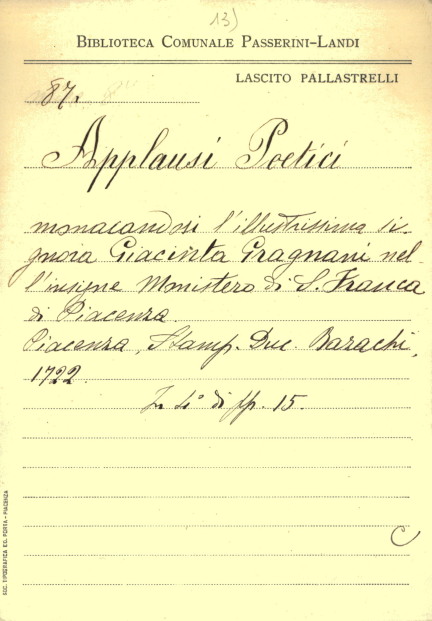 13)
BIBLIOTECA COMUNALE PASSERINI-LANDI
LASCITO PALLASTRELLI
87.
Applausi Poetici
monacandosi l'illustrissima si-
gnora Giacinta Gragnani nel-
l'insigne Monistero di S. Franca
di Piacenza.
Piacenza, Stamp. Duc. Bazachi,
1722.
In 4° di pp. 15.
C
SOC. TIPOGRAFICA ED. PORTA - PIACENZA